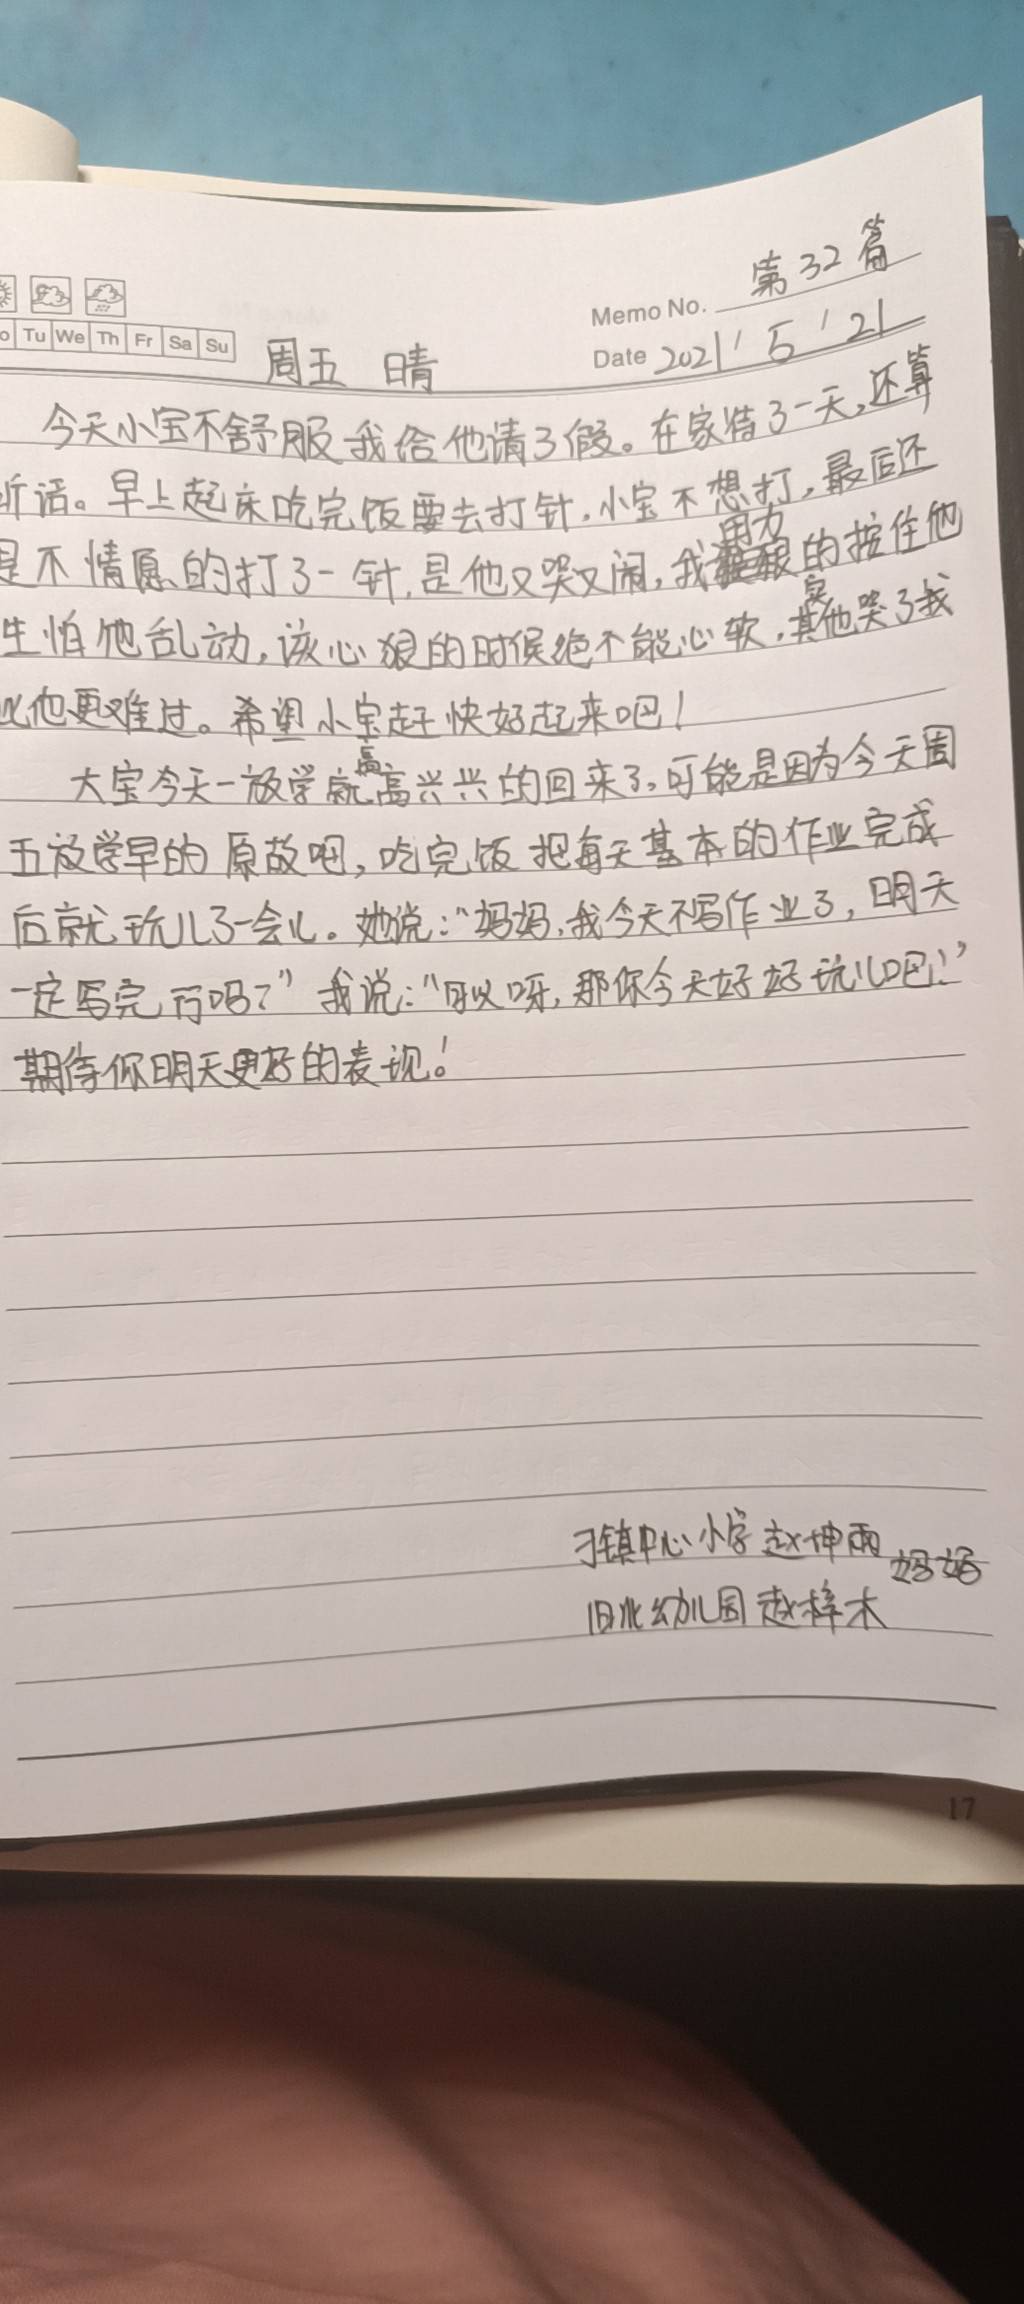 第32篇
Memo No.
Tu We Th Fr Sa Su
Date 2021 / 5 / 21
周五 晴
今天小宝不舒服我给他请了假。在家待了一天,还算
听话。早上起床吃完饭要去打针,小宝不想打,最后还
是不情愿的打了一针,是他又哭又闹,我用力的按住他
生怕他乱动,该心狠的时候绝不能心软,其实他哭了我
比他更难过。希望小宝赶快好起来吧!
大宝今天一放学就高高兴兴的回来了,可能是因为今天周
五放学早的原故吧,吃完饭把每天基本的作业完成
后就玩儿了一会儿。她说:“妈妈,我今天不写作业了,明天
一定写完行吗?”我说:“可以呀,那你今天好好玩儿吧!”
期待你明天更好的表现!
刁镇中心小学 赵坤雨 妈妈
旧北幼儿园 赵梓木
17